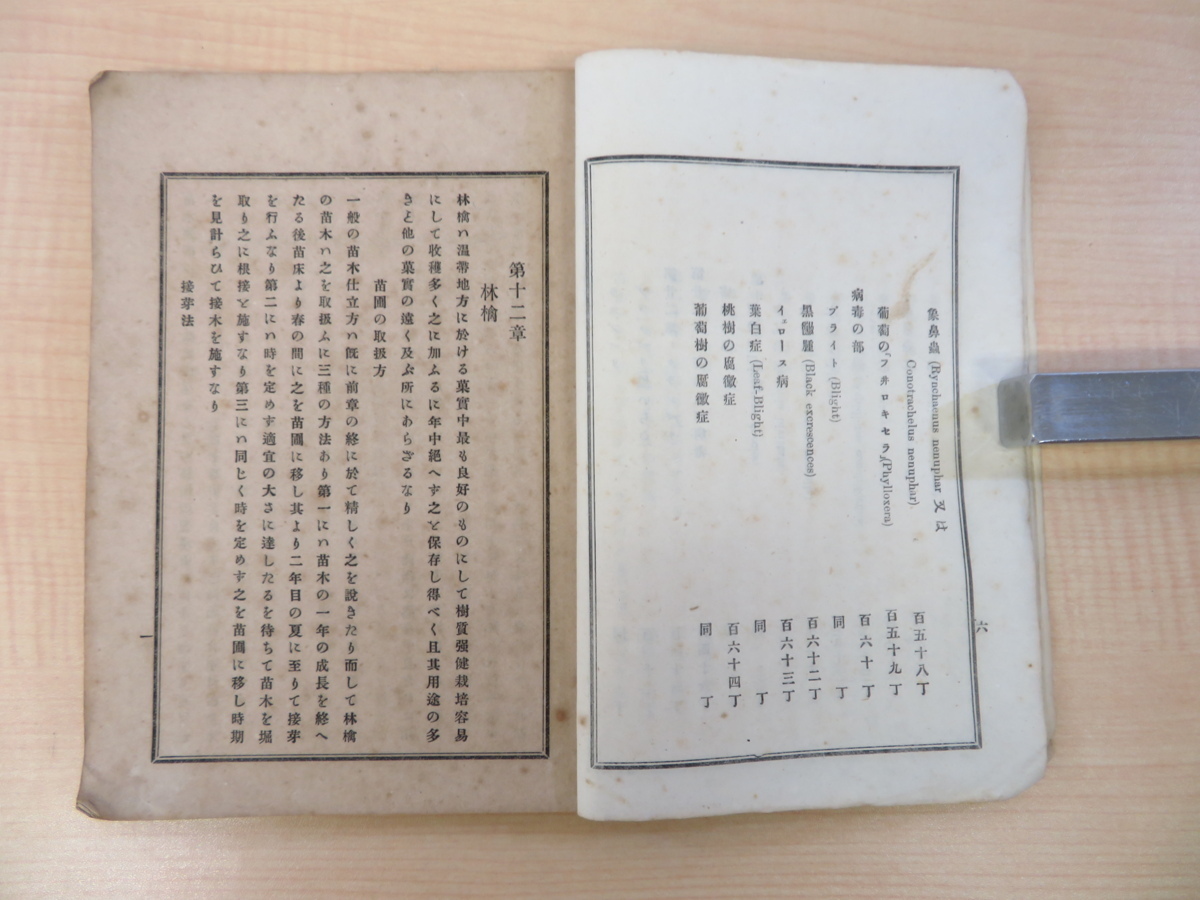 六
象鼻蟲 (Rynchaenus nenuphar 又は
Conotrachelus nenuphar). 百五十八丁
葡萄の「フ井ロキセラ」(Phylloxera) 百五十九丁
病毒の部 百六十丁
ブライト (Blight) 同丁
黒腫 (Black excrescences) 百六十二丁
イェロース病 百六十三丁
葉白症 (Leaf-Blight) 同丁
桃樹の腐黴症 百六十四丁
葡萄樹の腐黴症 同丁
第十二章
林檎
林檎ハ温帶地方に於ける菓實中最も良好のものにして樹質强健栽培容易
にして收穫多く之に加ふるに年中絶へず之を保存し得べく且其用途の多
きと他の菓實の遠く及ぶ所にあらざるなり
苗圃の取扱方
一般の苗木仕立方ハ既に前章の終に於て精しく之を説きたり而して林檎
の苗木ハ之を取扱ふに三種の方法あり第一にハ苗木の一年の成長を終へ
たる後苗床より春の間に之を苗圃に移し其より二年目の夏に至りて接芽
を行ふなり第二にハ時を定めず適宜の大さに達したるを待ちて苗木を堀
取り之に根接を施すなり第三にハ同じく時を定めず之を苗圃に移し時期
を見計らひて接木を施すなり
接芽法
一